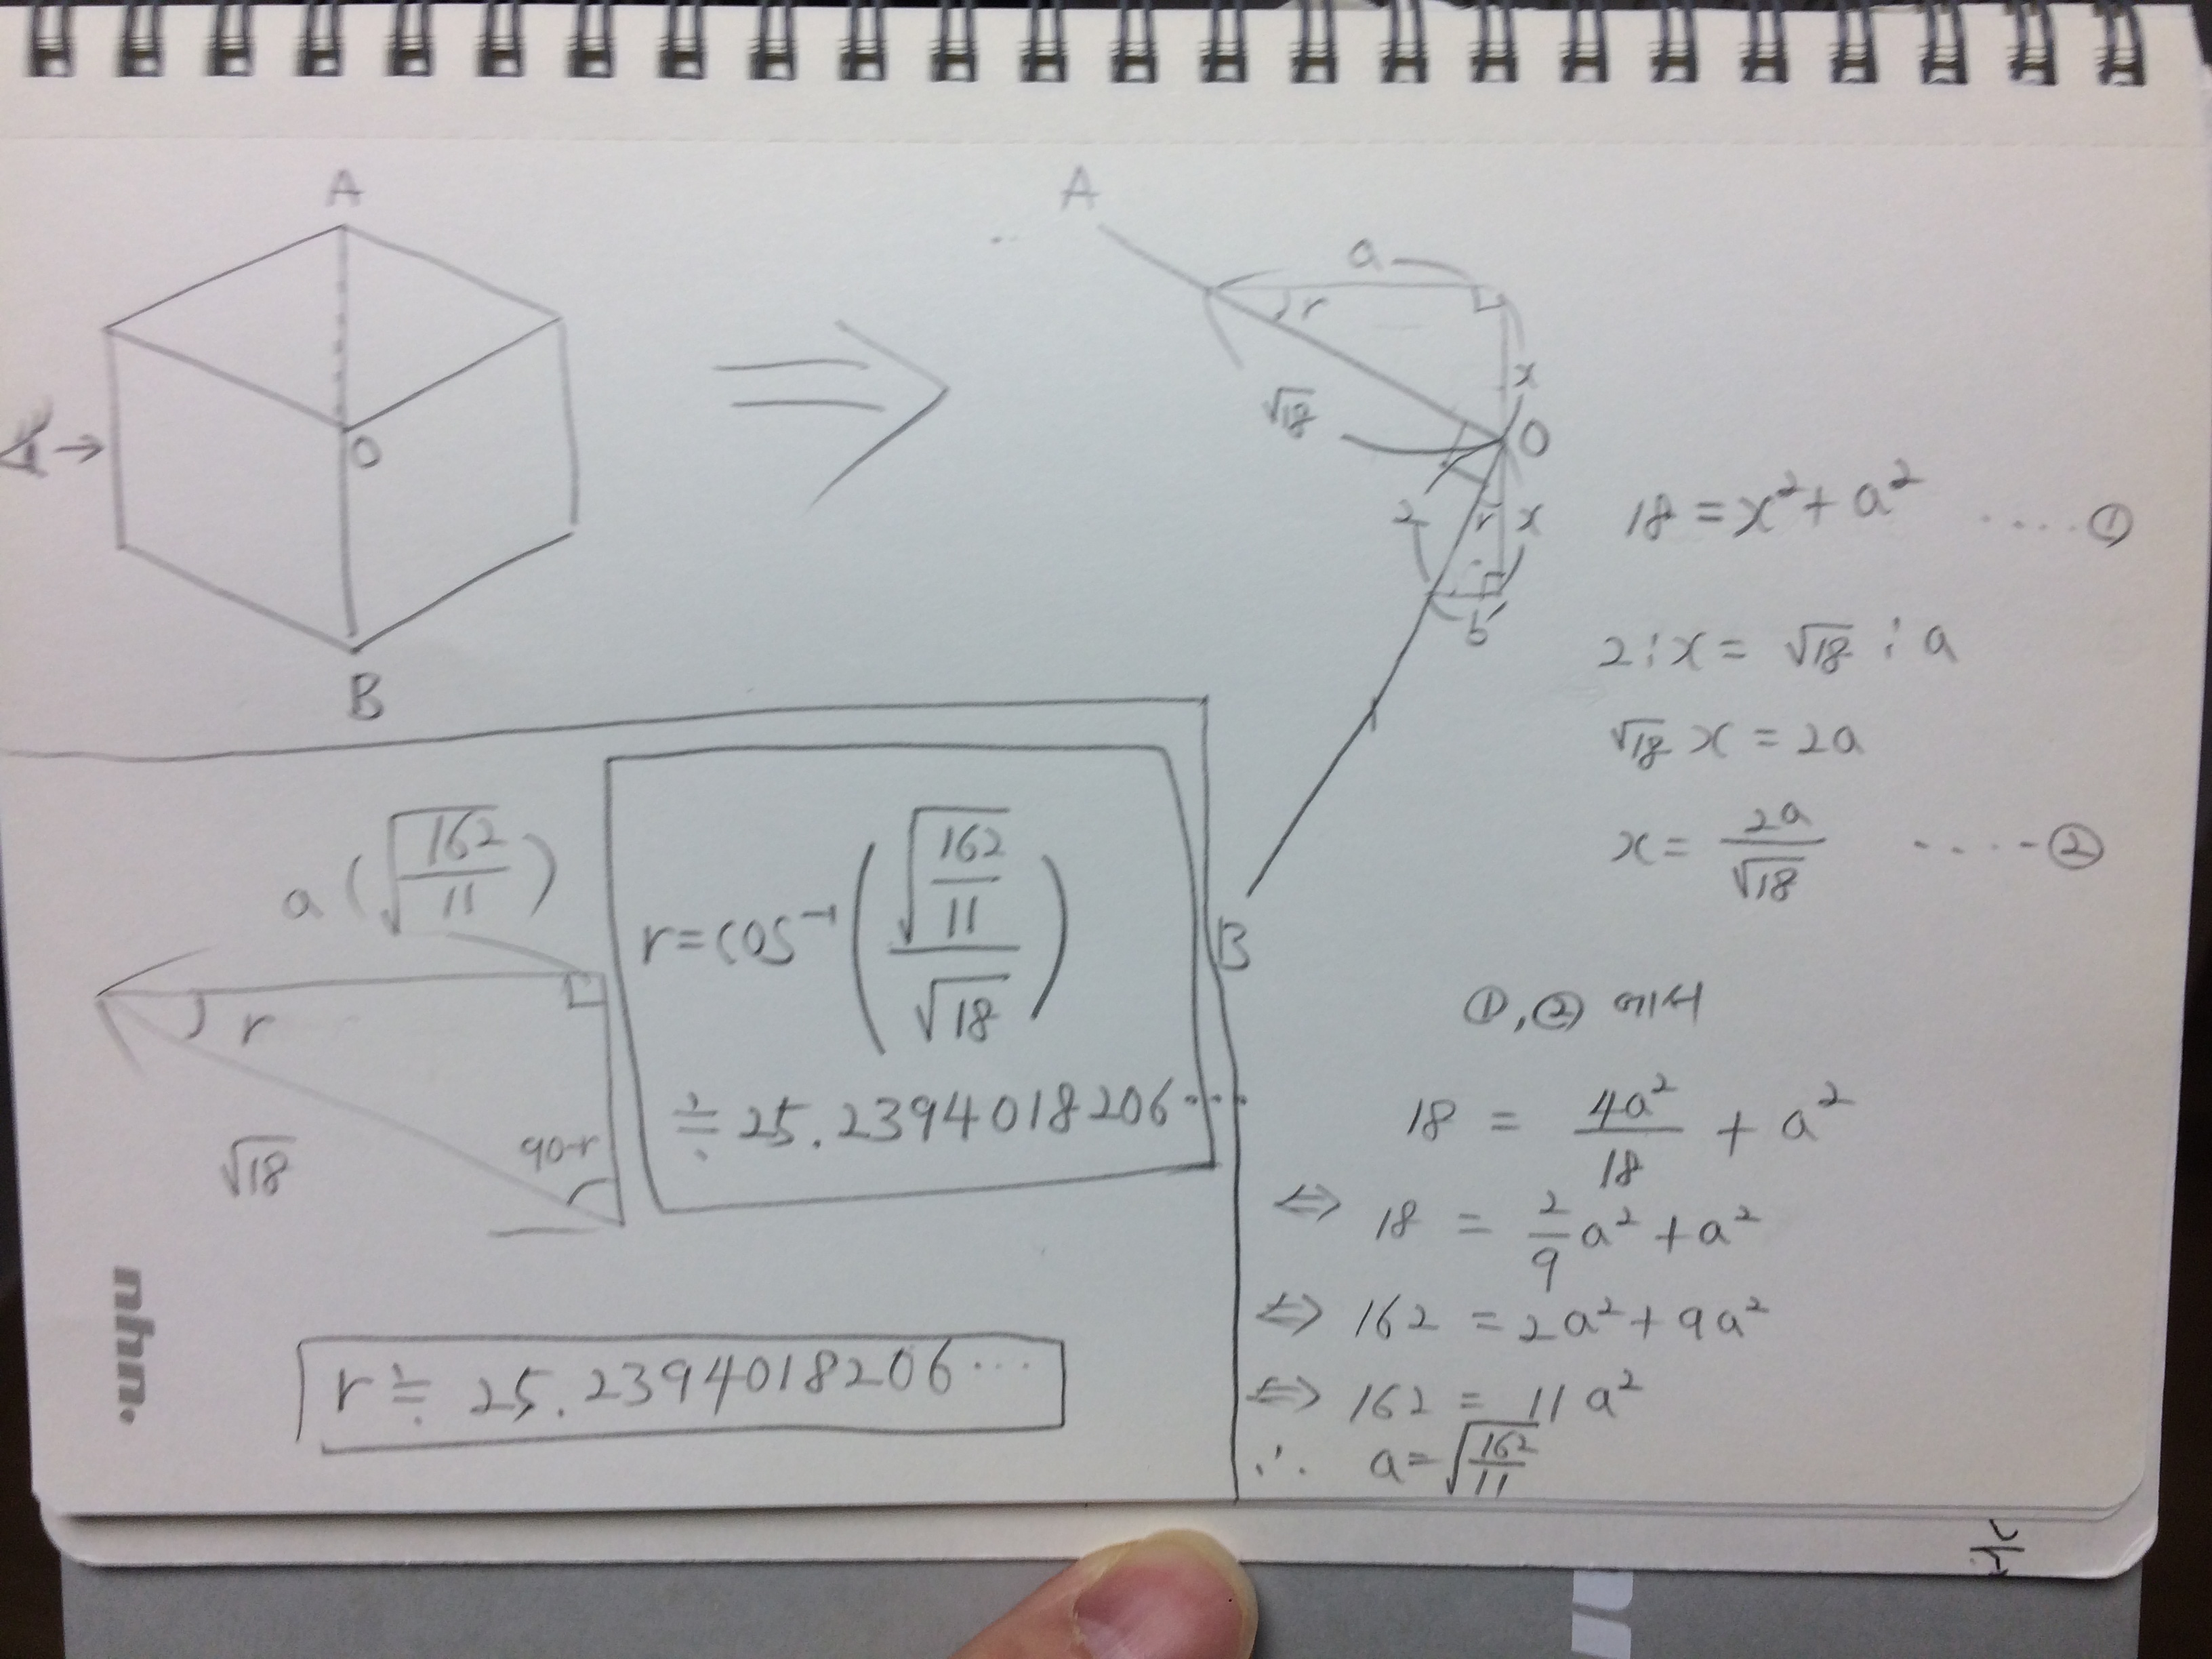 A
O
B
A
a
r
x
√18
O
2
r
x
b
B
18 = x² + a² ····①
2 : x = √18 : a
√18 x = 2a
x = 2a/√18 ····②
①,② 에서
18 = 4a²/18 + a²
⇔ 18 = 2/9 a² + a²
⇔ 162 = 2a² + 9a²
⇔ 162 = 11a²
∴ a = √(162/11)
a (√(162/11))
r
√18
90-r
r = cos⁻¹(√(162/11)/√18)
≒ 25.2394018206···
r ≒ 25.2394018206···
nhn.